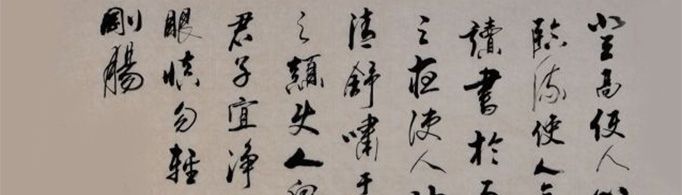 登高使人
臨流使人
讀書於
之夜使人
清舒嘯于
之顛使人
君子宜净
眼慎勿輕
剛腸